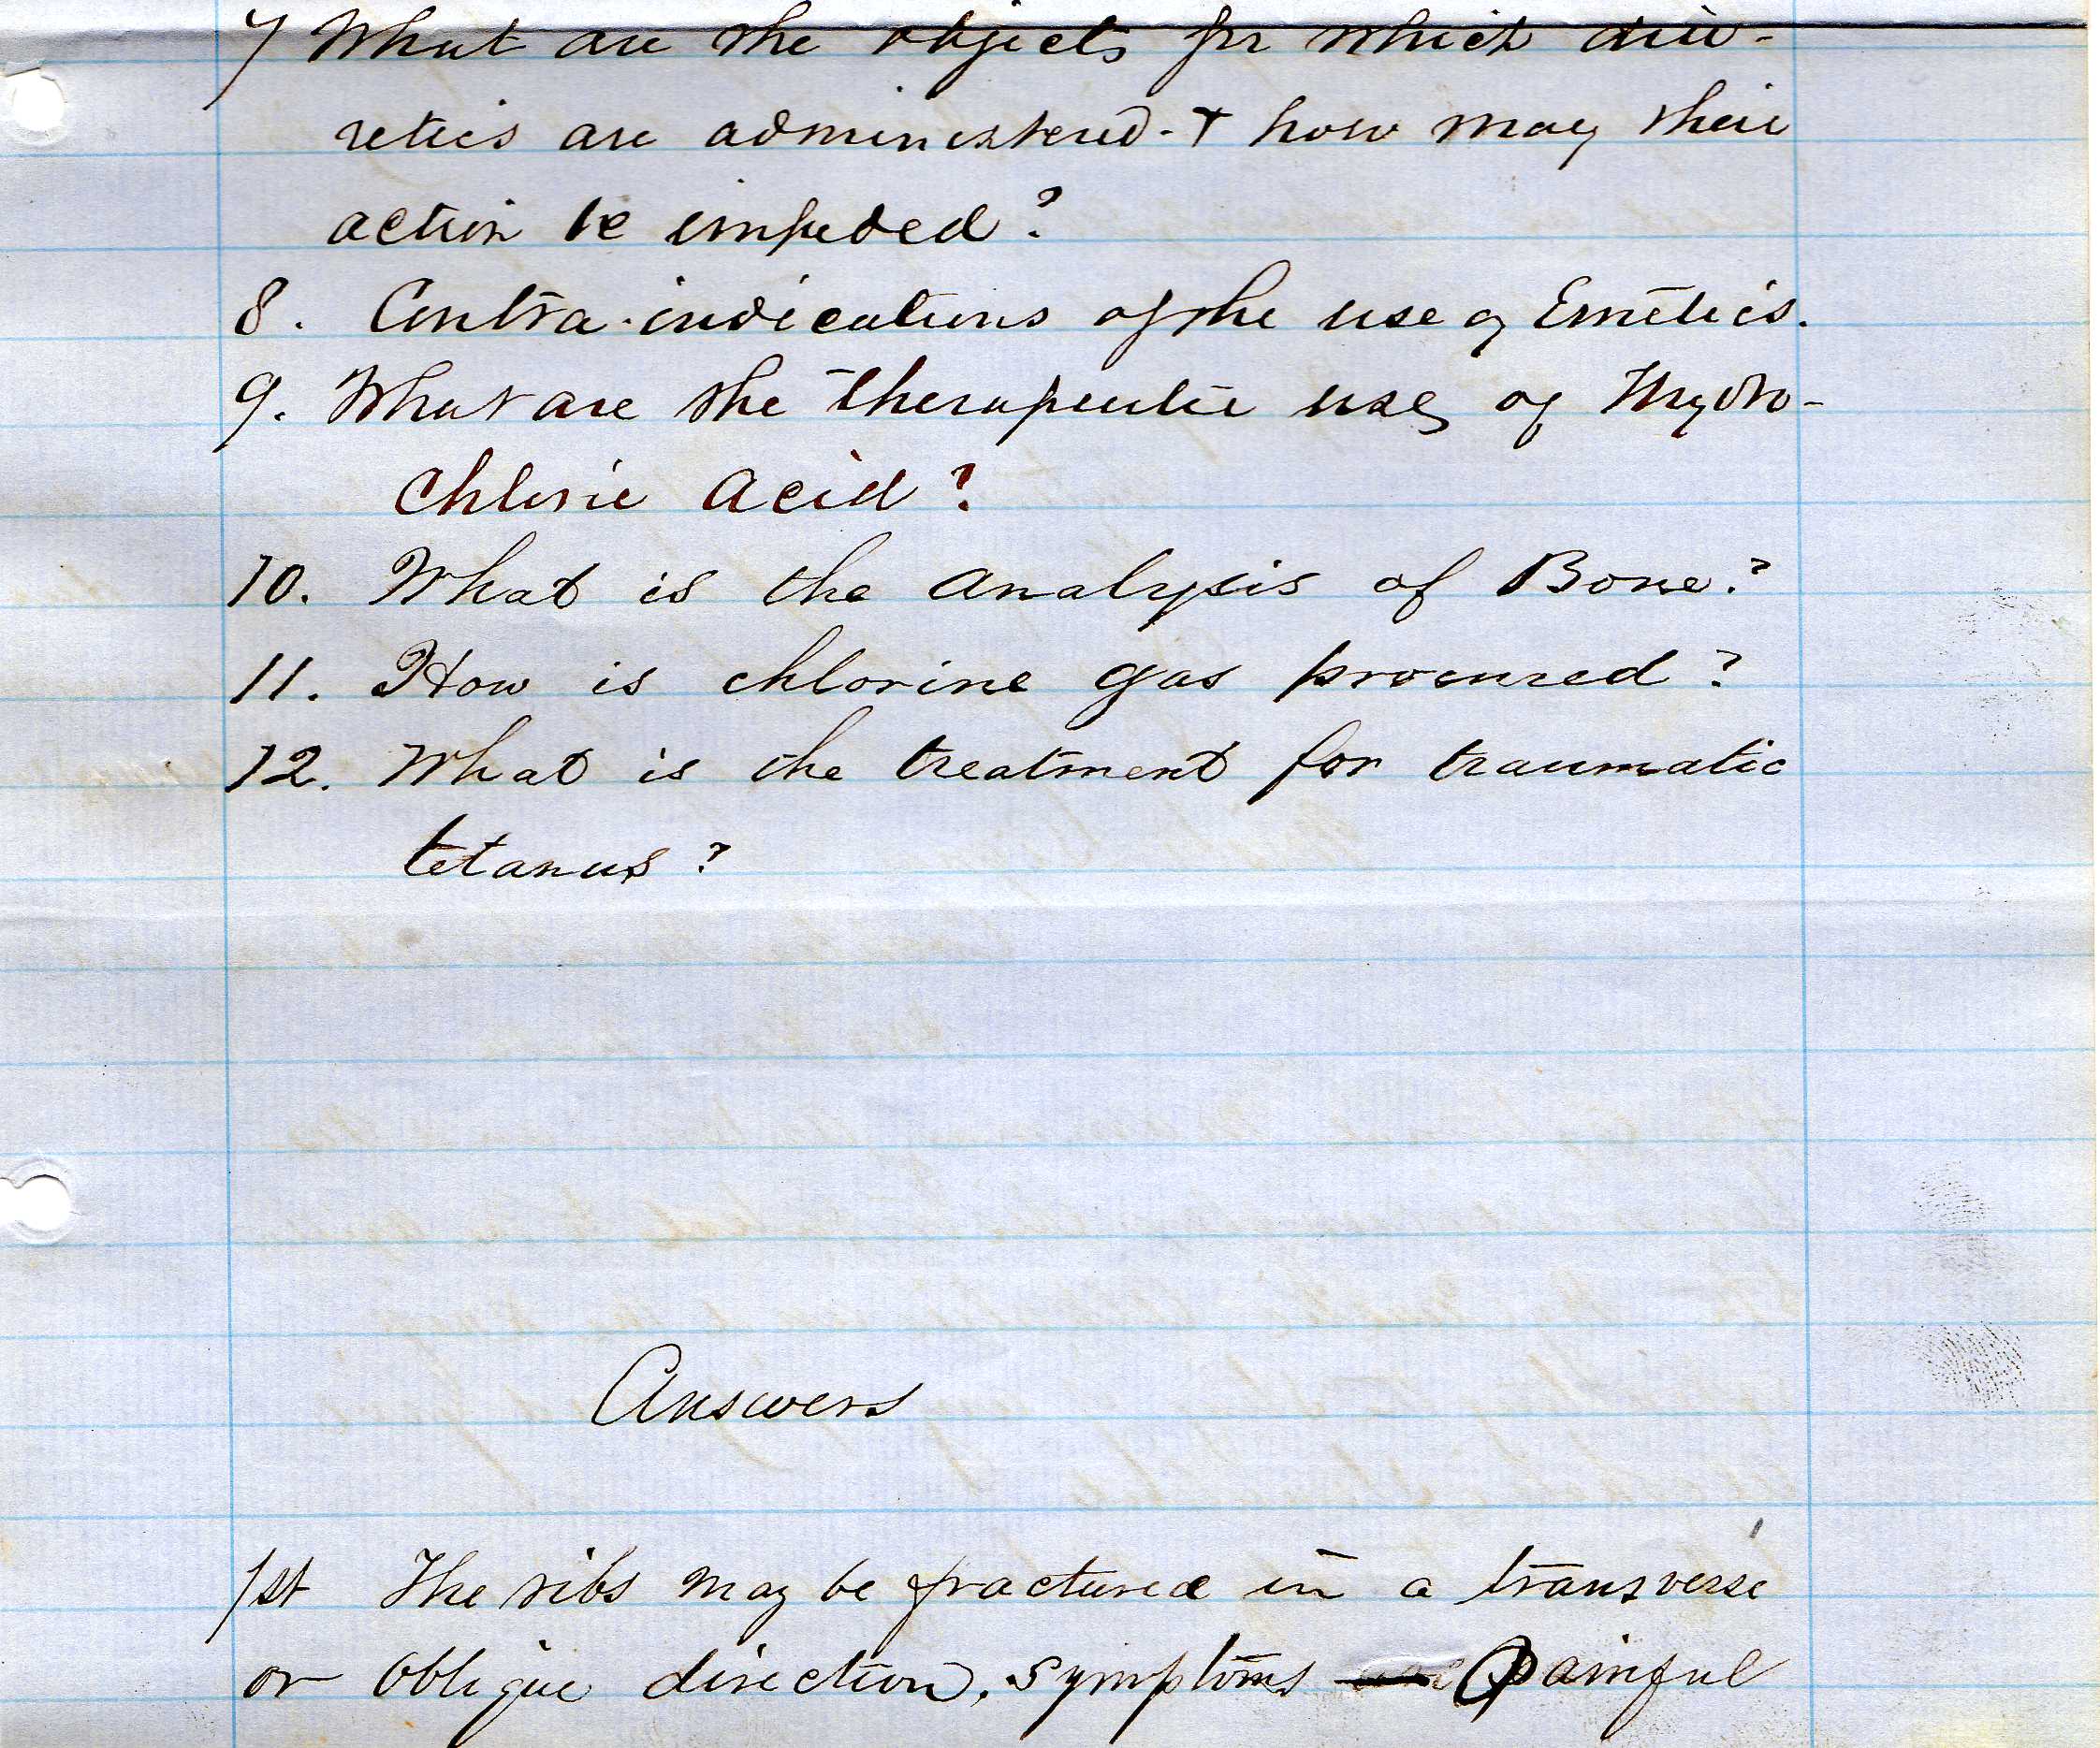 7 What are the objects for which diu-
retics are administered - + how may their
action be impeded?
8. Contra-indications of the use of Emetics.
9. What are the therapeutic uses of Hydro-
Chloric Acid?
10. What is the analysis of Bone?
11. How is chlorine gas procured?
12. What is the treatment for traumatic
tetanus?
Answers
1st The ribs may be fractured in a transverse
or oblique direction. Symptoms Painful